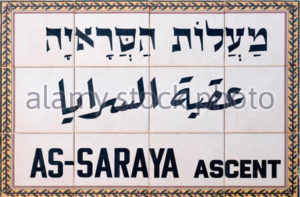 מַעֲלוֹת הַסַּרָאיָה
عقبة السرايا
alamy stock photo
AS-SARAYA ASCENT